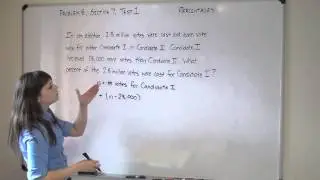 Problem 8, Section 7, Test 1 Percentages
In an election, 2.8 million votes were cast and each vote
was for either Candidate I or Candidate II. Candidate I
received 28,000 more votes than Candidate II. What
percent of the 2.8 million votes were cast for Candidate I?
votes for Candidate I
+ (n-28,000)